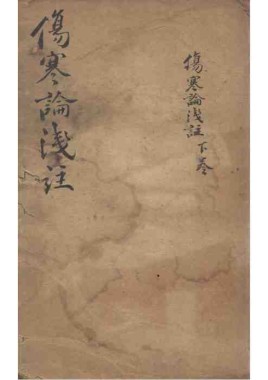 傷寒論浅註
下卷
傷寒論浅註